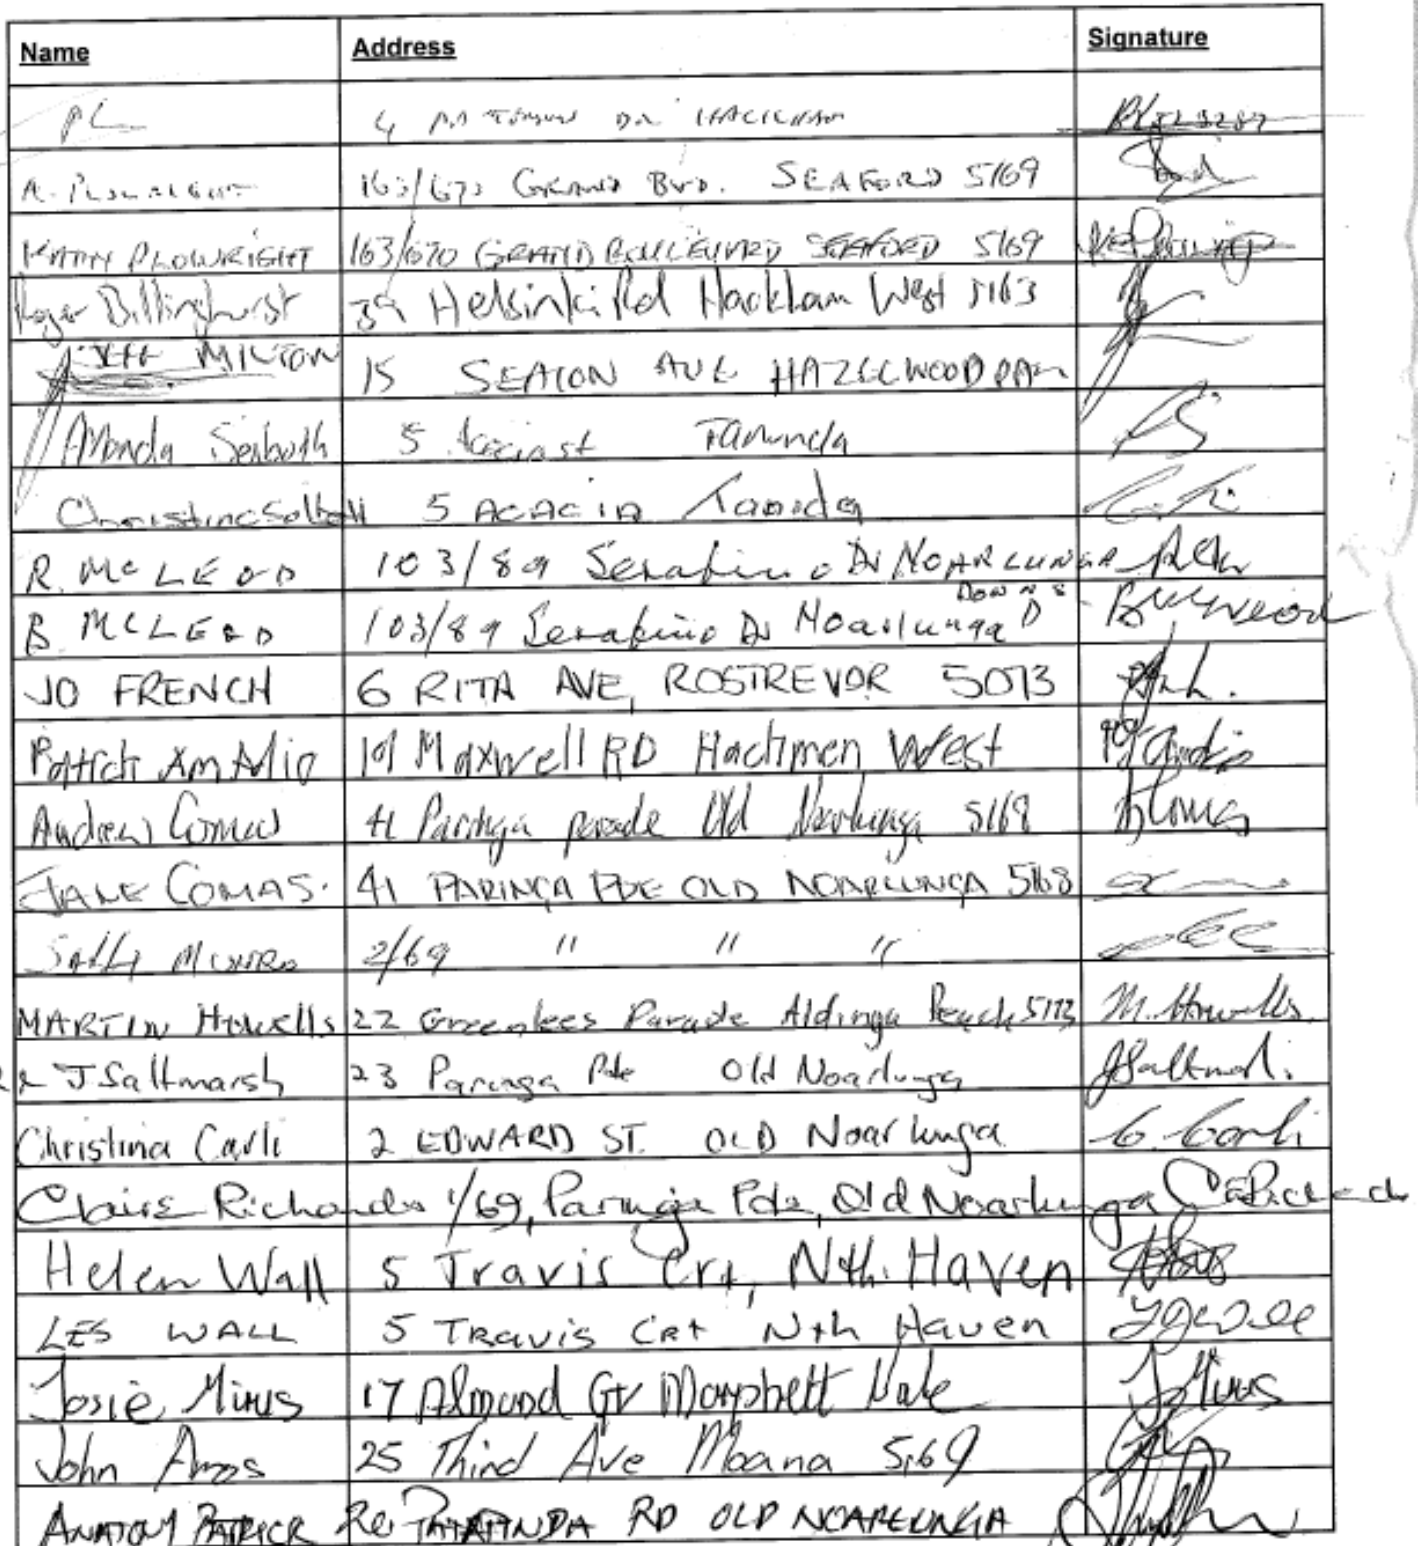 Name Address Signature
PL 4
163/670 GRAND BVD. SEAFORD 5169
KATHY PLOWRIGHT 163/670 GRAND BOULEVARD SEAFORD 5169
Roger Billinghurst 39 Helsinki Rd Hackham West 5163
JEFF MILTON 15 SEATON AVE HAZELWOOD PARK
Amanda 5 Tanunda
Christine 5 ACACIA
R. McLEOD 103/89 Serafino Dr NOARLUNGA
DOWNS
B. MCLEOD 103/89 Serafino Dr Noarlunga D
JO FRENCH 6 RITA AVE, ROSTREVOR 5073
19 Maxwell RD West
Andrew Comas 41 Paringa parade Old Noarlunga 5168
JANE COMAS. 41 PARINGA PDE OLD NOARLUNGA 5168
Sally MUNRO 2/69 " " "
MARTIN Howells 22 Greenlees Parade Aldinga Beach 5173 M. Howells.
& J Saltmarsh 23 Paringa Pde Old Noarlunga JSaltmarsh.
Christina Carli 2 EDWARD ST. OLD Noarlunga C. Carli
Claire Richards 1/69, Paringa Pde, Old Noarlunga
Helen Wall 5 Travis Crt, Nth. Haven
LES WALL 5 TRAVIS CRT Nth Haven
Josie Mirus 17 Almond Gv Morphett Vale J Mirus
John Amos 25 Third Ave Moana 5169
PATRICK RD OLD NOARLUNGA